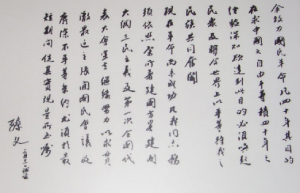 余致力國民革命凡四十年其目的
在求中國之自由平等積四十年之
經驗深知欲達到此目的必須喚起
民眾及聯合世界上以平等待我之
民族共同奮鬥
現在革命尚未成功凡我同志務
須依照余所著建國方略建國
大綱三民主義及第一次全國代
表大會宣言繼續努力以求貫
徹最近主張開國民會議及
廢除不平等條約尤須於最
短期間促其實現是所至囑
孫文